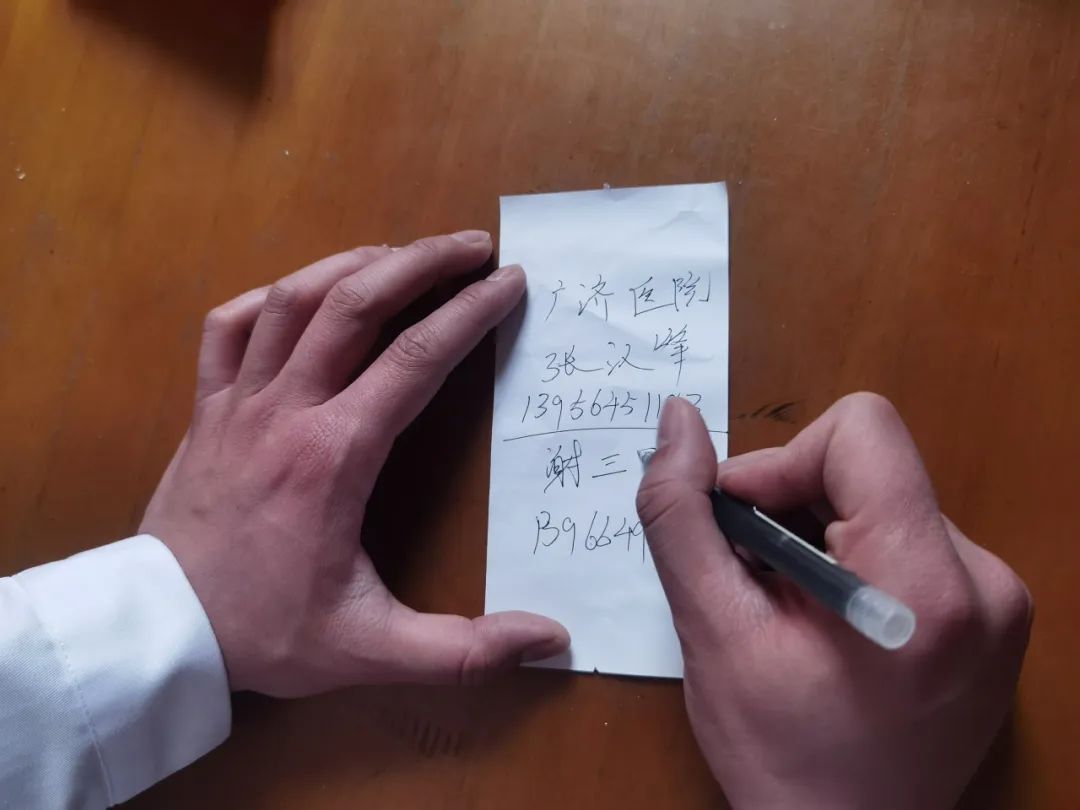 广济医院
张汉峰
139564511
谢三
139664